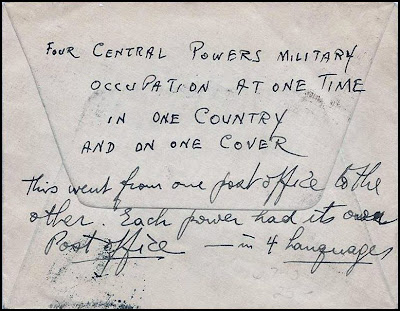 FOUR CENTRAL POWERS MILITARY
OCCUPATION AT ONE TIME
IN ONE COUNTRY
AND ON ONE COVER
This went from one post office to the
other. Each power had its own
Post office — in 4 languages